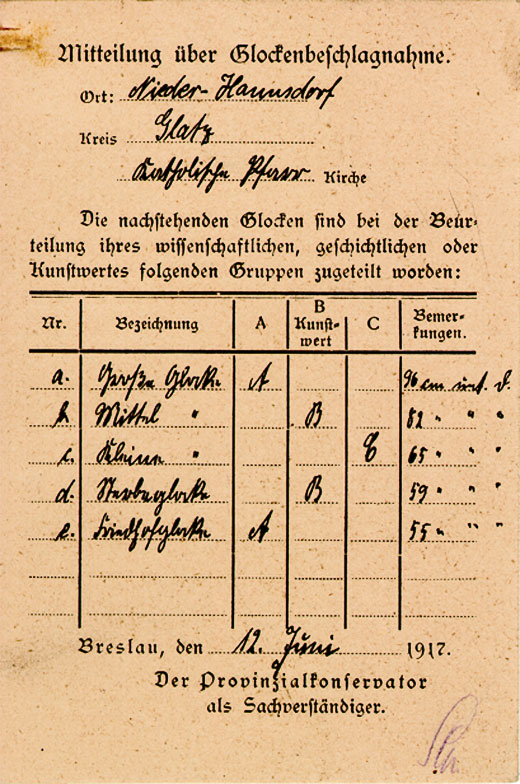 Mitteilung über Glockenbeschlagnahme.
Ort: Nieder-Hannsdorf
Kreis Glatz
Katholische Pfarr Kirche
Die nachstehenden Glocken sind bei der Beur-
teilung ihres wissenschaftlichen, geschichtlichen oder
Kunstwertes folgenden Gruppen zugeteilt worden:
Nr. Bezeichnung A B Kunst-wert C Bemer-kungen.
a. Große Glocke A 96 cm unt. d.
b. Mittel " B 82 " " "
c. Kleine " C 65 " " "
d. Sterbeglocke B 59 " " "
e. Friedhofglocke A 55 " " "
Breslau, den 12. Juni 1917.
Der Provinzialkonservator
als Sachverständiger.